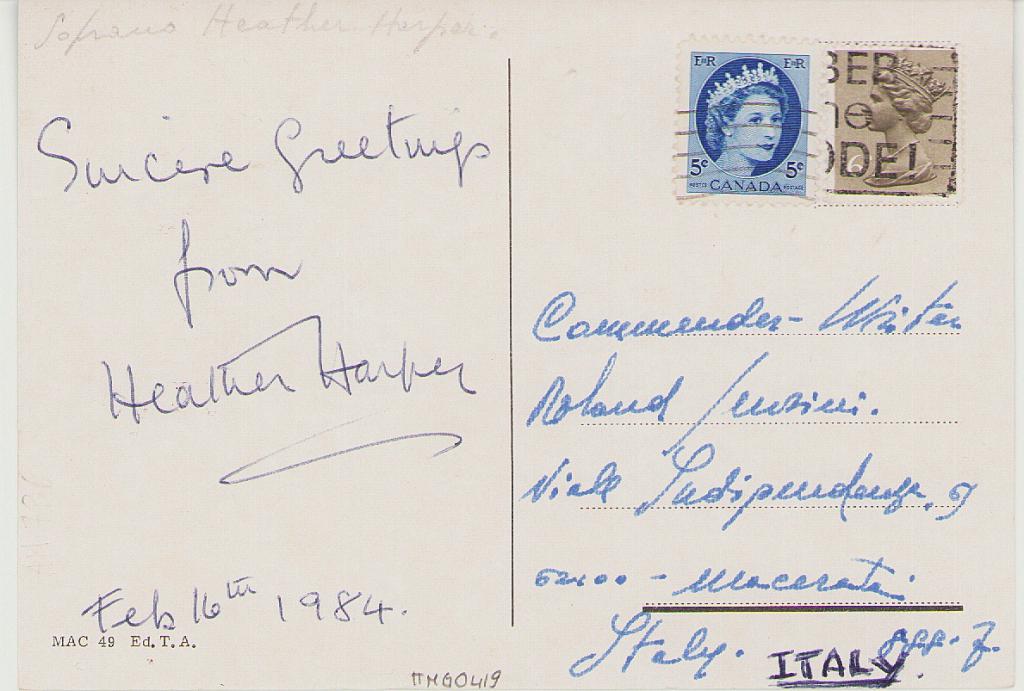 Soprano Heather Harper.
Sincere Greetings
from
Heather Harper
Feb 16th 1984.
MAC 49 Ed. T. A.
E R E R
5c 5c
POSTES CANADA POSTAGE
BER
ODE!
Commender - Writer
Roland
Viale Indipendenza,
62100 - Macerata
Italy.
ITALY